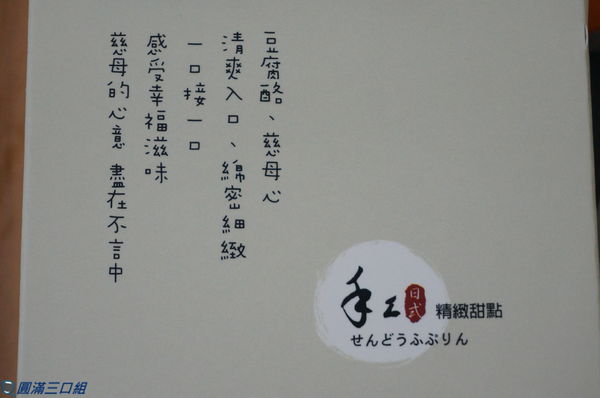 豆腐酪、慈母心
清爽入口、綿密細緻
一口接一口
感受幸福滋味
慈母的心意 盡在不言中
手工日式 精緻甜點
せんどうふぷりん
圓滿三口組